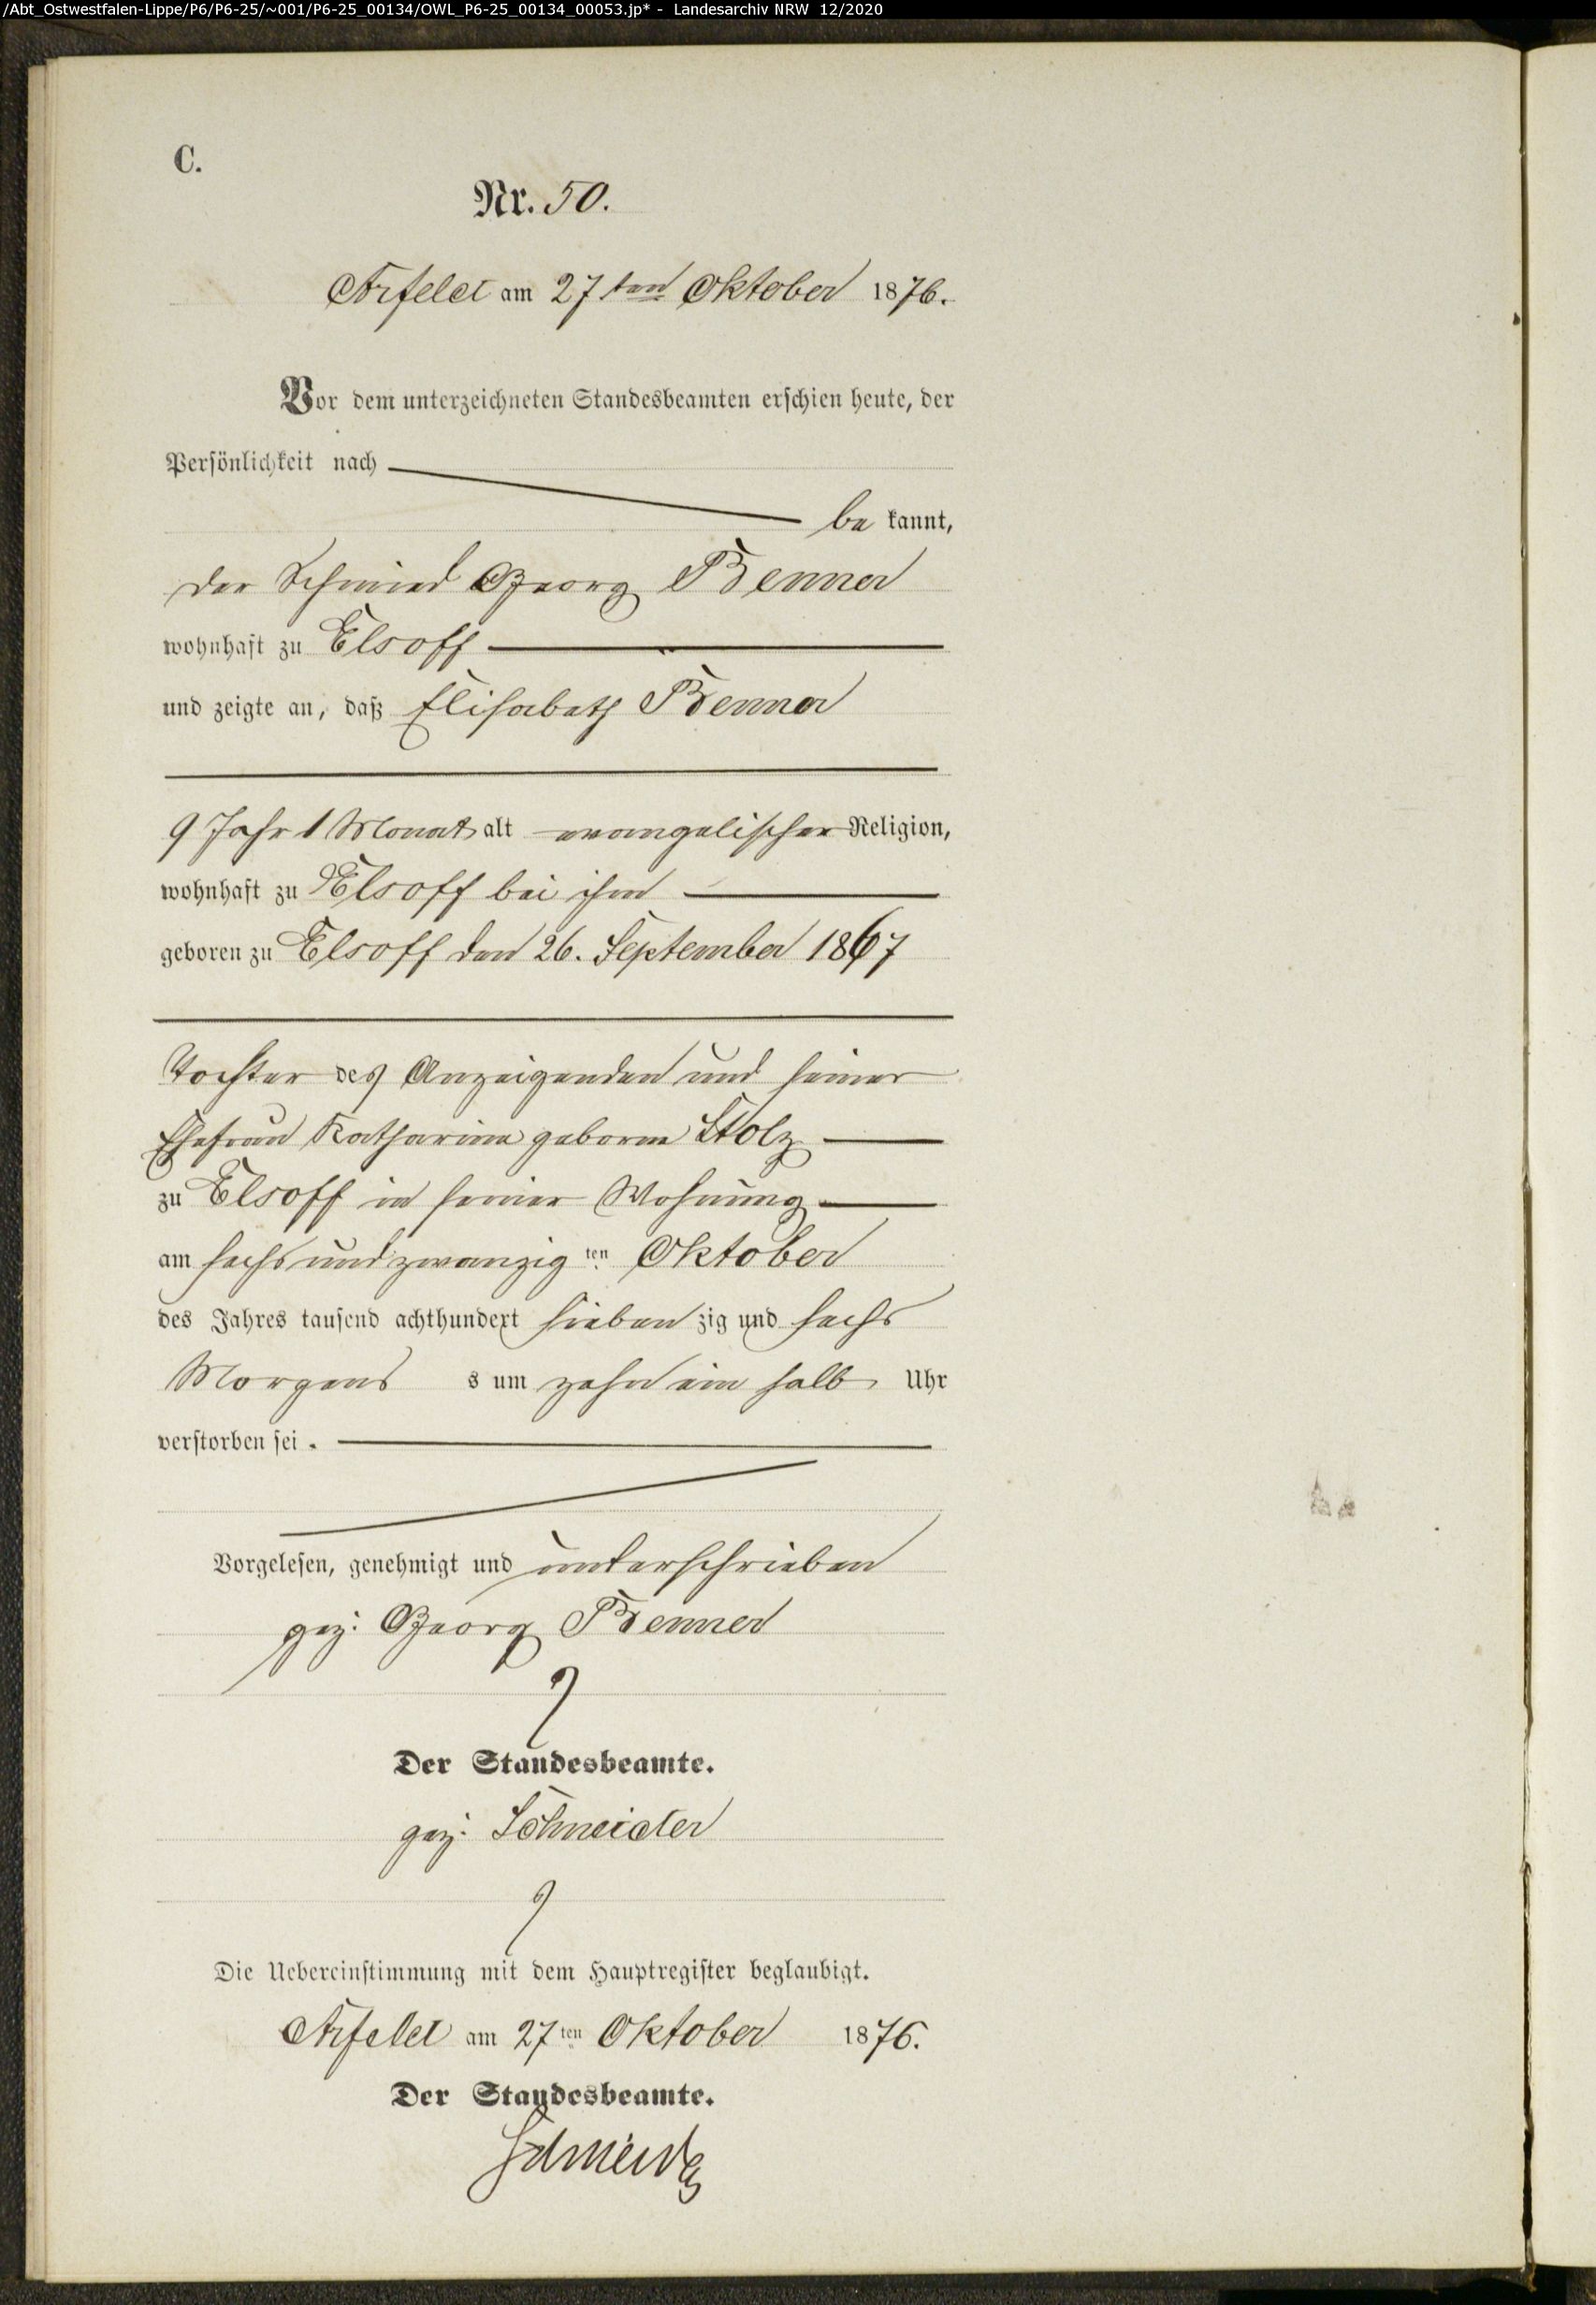 /Abt_Ostwestfalen-Lippe/P6/P6-25/~001/P6-25_00134/OWL_P6-25_00134_00053.jp* - Landesarchiv NRW 12/2020
C.
Nr. 50.
Arfeld am 27ten Oktober 1876.
Vor dem unterzeichneten Standesbeamten erschien heute, der
Persönlichkeit nach
be kannt,
der Schmied Georg Benner
wohnhaft zu Elsoff
und zeigte an, daß Elisabeth Benner
9 Jahr 1 Monat alt evangelischer Religion,
wohnhaft zu Elsoff bei ihm
geboren zu Elsoff den 26. September 1867
Tochter des Anzeigenden und seiner
Ehefrau Katharina geborne Stolz
zu Elsoff in seiner Wohnung
am sechs und zwanzig ten Oktober
des Jahres tausend achthundert sieben zig und sechs
Morgens s um zehn ein halb Uhr
verstorben sei.
Vorgelesen, genehmigt und unterschrieben
gez. Georg Benner
Der Standesbeamte.
gez. Schneider
Die Uebereinstimmung mit dem Hauptregister beglaubigt.
Arfeld am 27ten Oktober 1876.
Der Standesbeamte.
Schneider